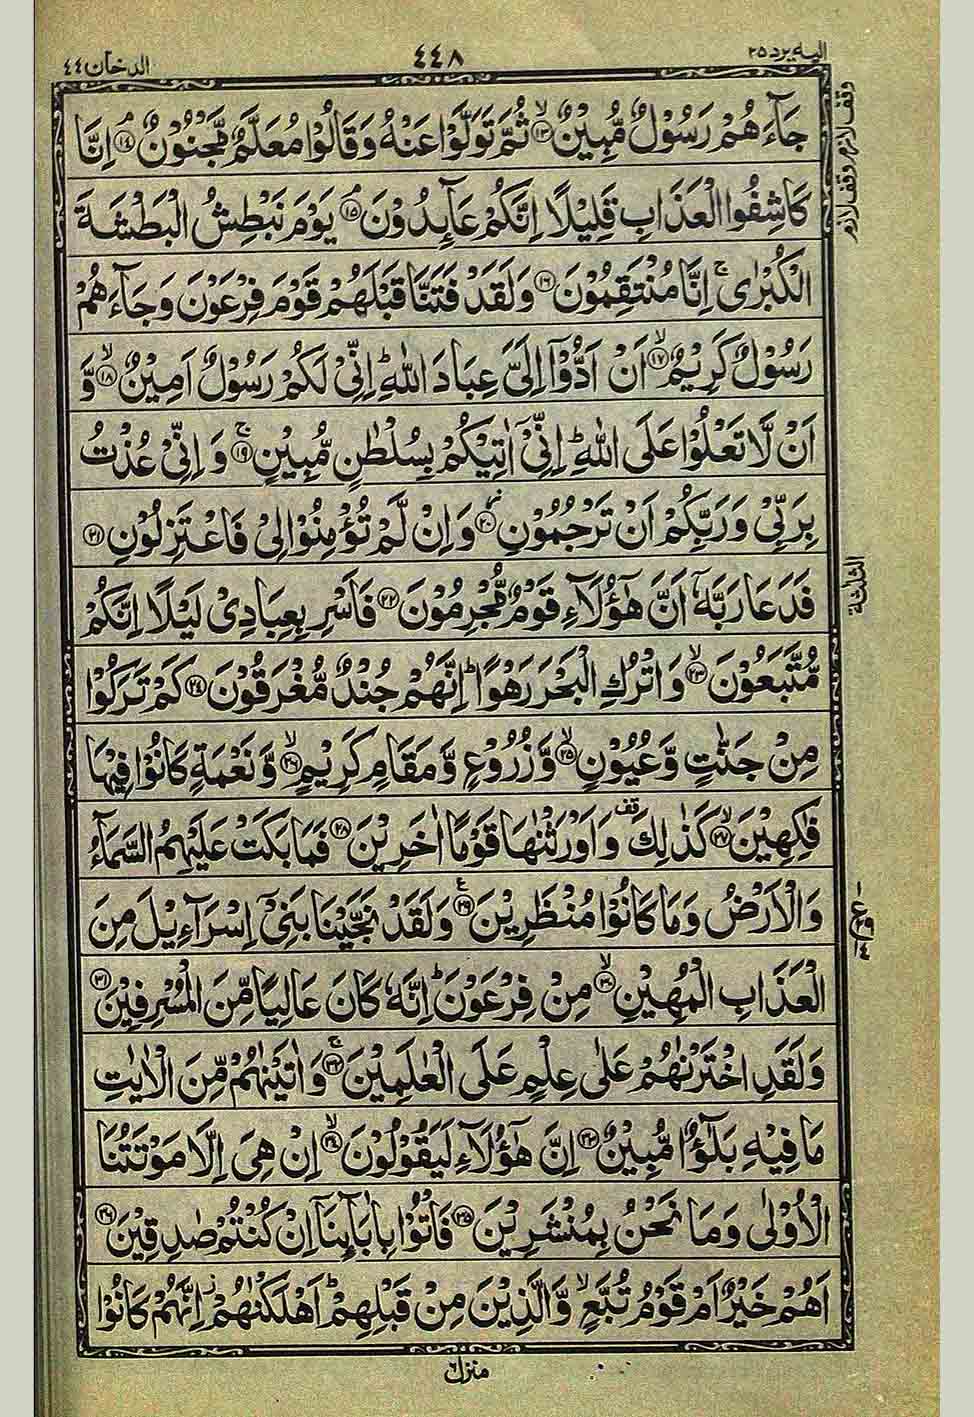 اليه يرد ٢٥
٤٤٨
الدخان ٤٤
جَآءَهُمْ رَسُوْلٌ مُّبِيْنٌ ۙ﴿١٣﴾ ثُمَّ تَوَلَّوْا عَنْهُ وَقَالُوْا مُعَلَّمٌ مَّجْنُوْنٌ ۘ﴿١٤﴾ اِنَّا
كَاشِفُوا الْعَذَابِ قَلِيْلًا اِنَّكُمْ عَآئِدُوْنَ ۘ﴿١٥﴾ يَوْمَ نَبْطِشُ الْبَطْشَةَ
الْكُبْرٰى ۚ اِنَّا مُنْتَقِمُوْنَ ﴿١٦﴾ وَلَقَدْ فَتَنَّا قَبْلَهُمْ قَوْمَ فِرْعَوْنَ وَجَآءَهُمْ
رَسُوْلٌ كَرِيْمٌ ۙ﴿١٧﴾ اَنْ اَدُّوْٓا اِلَيَّ عِبَادَ اللّٰهِ ؕ اِنِّيْ لَكُمْ رَسُوْلٌ اَمِيْنٌ ۙ﴿١٨﴾ وَّ
اَنْ لَّا تَعْلُوْا عَلَى اللّٰهِ ؕ اِنِّيْٓ اٰتِيْكُمْ بِسُلْطٰنٍ مُّبِيْنٍ ۚ﴿١٩﴾ وَاِنِّيْ عُذْتُ
بِرَبِّيْ وَرَبِّكُمْ اَنْ تَرْجُمُوْنِ ۫﴿٢٠﴾ وَاِنْ لَّمْ تُؤْمِنُوْا لِيْ فَاعْتَزِلُوْنِ ﴿٢١﴾
فَدَعَا رَبَّهٗٓ اَنَّ هٰٓؤُلَآءِ قَوْمٌ مُّجْرِمُوْنَ ﴿٢٢﴾ فَاَسْرِ بِعِبَادِيْ لَيْلًا اِنَّكُمْ
مُّتَّبَعُوْنَ ۙ﴿٢٣﴾ وَاتْرُكِ الْبَحْرَ رَهْوًا ؕ اِنَّهُمْ جُنْدٌ مُّغْرَقُوْنَ ﴿٢٤﴾ كَمْ تَرَكُوْا
مِنْ جَنّٰتٍ وَّعُيُوْنٍ ۙ﴿٢٥﴾ وَّزُرُوْعٍ وَّمَقَامٍ كَرِيْمٍ ۙ﴿٢٦﴾ وَّنَعْمَةٍ كَانُوْا فِيْهَا
فٰكِهِيْنَ ۙ﴿٢٧﴾ كَذٰلِكَ قف وَاَوْرَثْنٰهَا قَوْمًا اٰخَرِيْنَ ﴿٢٨﴾ فَمَا بَكَتْ عَلَيْهِمُ السَّمَآءُ
وَالْاَرْضُ وَمَا كَانُوْا مُنْظَرِيْنَ ﴿٢٩﴾ع وَلَقَدْ نَجَّيْنَا بَنِيْٓ اِسْرَآءِيْلَ مِنَ
الْعَذَابِ الْمُهِيْنِ ۙ﴿٣٠﴾ مِنْ فِرْعَوْنَ ؕ اِنَّهٗ كَانَ عَالِيًا مِّنَ الْمُسْرِفِيْنَ ﴿٣١﴾
وَلَقَدِ اخْتَرْنٰهُمْ عَلٰى عِلْمٍ عَلَى الْعٰلَمِيْنَ ۚ﴿٣٢﴾ وَاٰتَيْنٰهُمْ مِّنَ الْاٰيٰتِ
مَا فِيْهِ بَلٰٓؤٌا مُّبِيْنٌ ﴿٣٣﴾ اِنَّ هٰٓؤُلَآءِ لَيَقُوْلُوْنَ ۙ﴿٣٤﴾ اِنْ هِيَ اِلَّا مَوْتَتُنَا
الْاُوْلٰى وَمَا نَحْنُ بِمُنْشَرِيْنَ ﴿٣٥﴾ فَاْتُوْا بِاٰبَآئِنَآ اِنْ كُنْتُمْ صٰدِقِيْنَ ﴿٣٦﴾
اَهُمْ خَيْرٌ اَمْ قَوْمُ تُبَّعٍ ۙ وَّالَّذِيْنَ مِنْ قَبْلِهِمْ ؕ اَهْلَكْنٰهُمْ ۫ اِنَّهُمْ كَانُوْا
وقف لازم وقف لازم
الثلثة
ع
منزل ٦